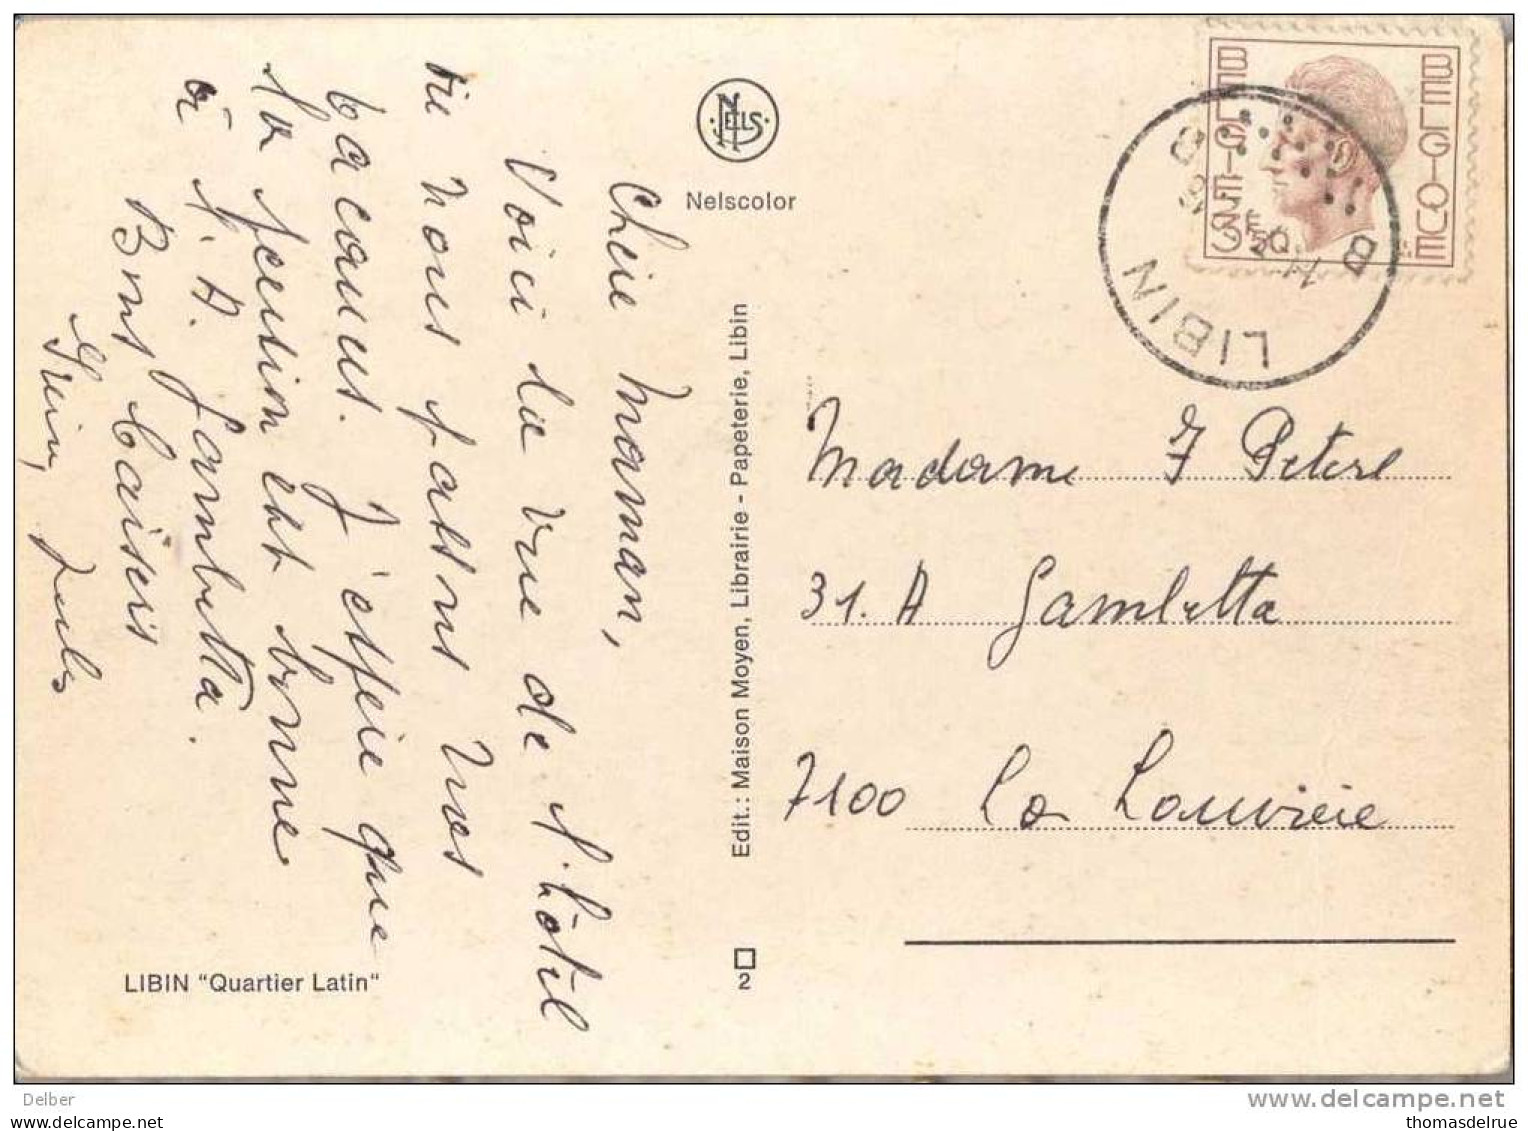 BELGIE
BELGIQUE
LIBIN
B
NELS
Nelscolor
Chère Maman,
Voici la vue de l'hôtel
où nous passons nos
vacances. J'espère que
ta pension est bonne
à l'A. Gambetta.
Bons baisers
Jules
Edit.: Maison Moyen, Librairie - Papeterie, Libin
2
Madame J Peters
31. A Gambetta
7100 La Louvière
LIBIN “Quartier Latin“
Delber
delcampe.net
www.delcampe.net
thomasdelrue